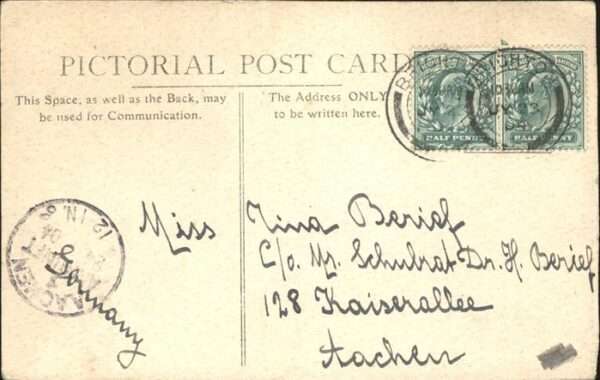 PICTORIAL POST CARD
This Space, as well as the Back, may
be used for Communication.
The Address ONLY
to be written here.
HALF PENNY
HALF PENNY
Miss Tina Berief
C/o. Mr. Schulrat Dr. H. Berief
128 Kaiserallee
Aachen
Germany
AACHEN